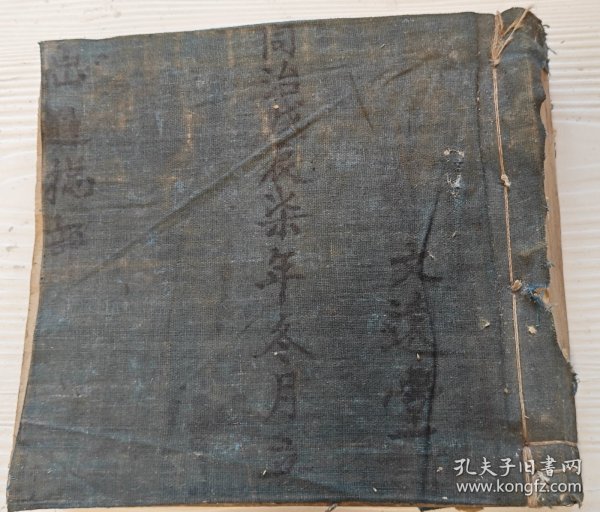 文遠堂
同治戊辰柒年冬月立
出進總部
孔夫子旧書网
www.kongfz.com